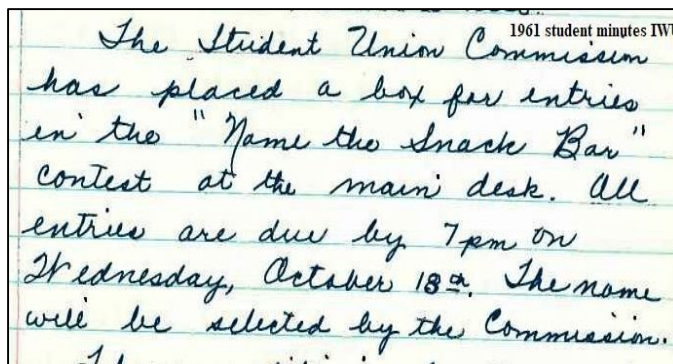 1961 student minutes IWU
The Student Union Commission
has placed a box for entries
in the "Name the Snack Bar"
contest at the main desk. All
entries are due by 7pm on
Wednesday, October 18th. The name
will be selected by the Commission.